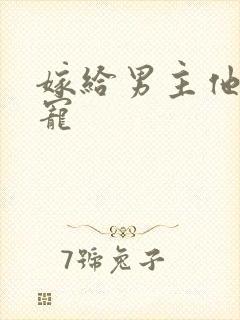 嫁給男主他
寵
7號兔子